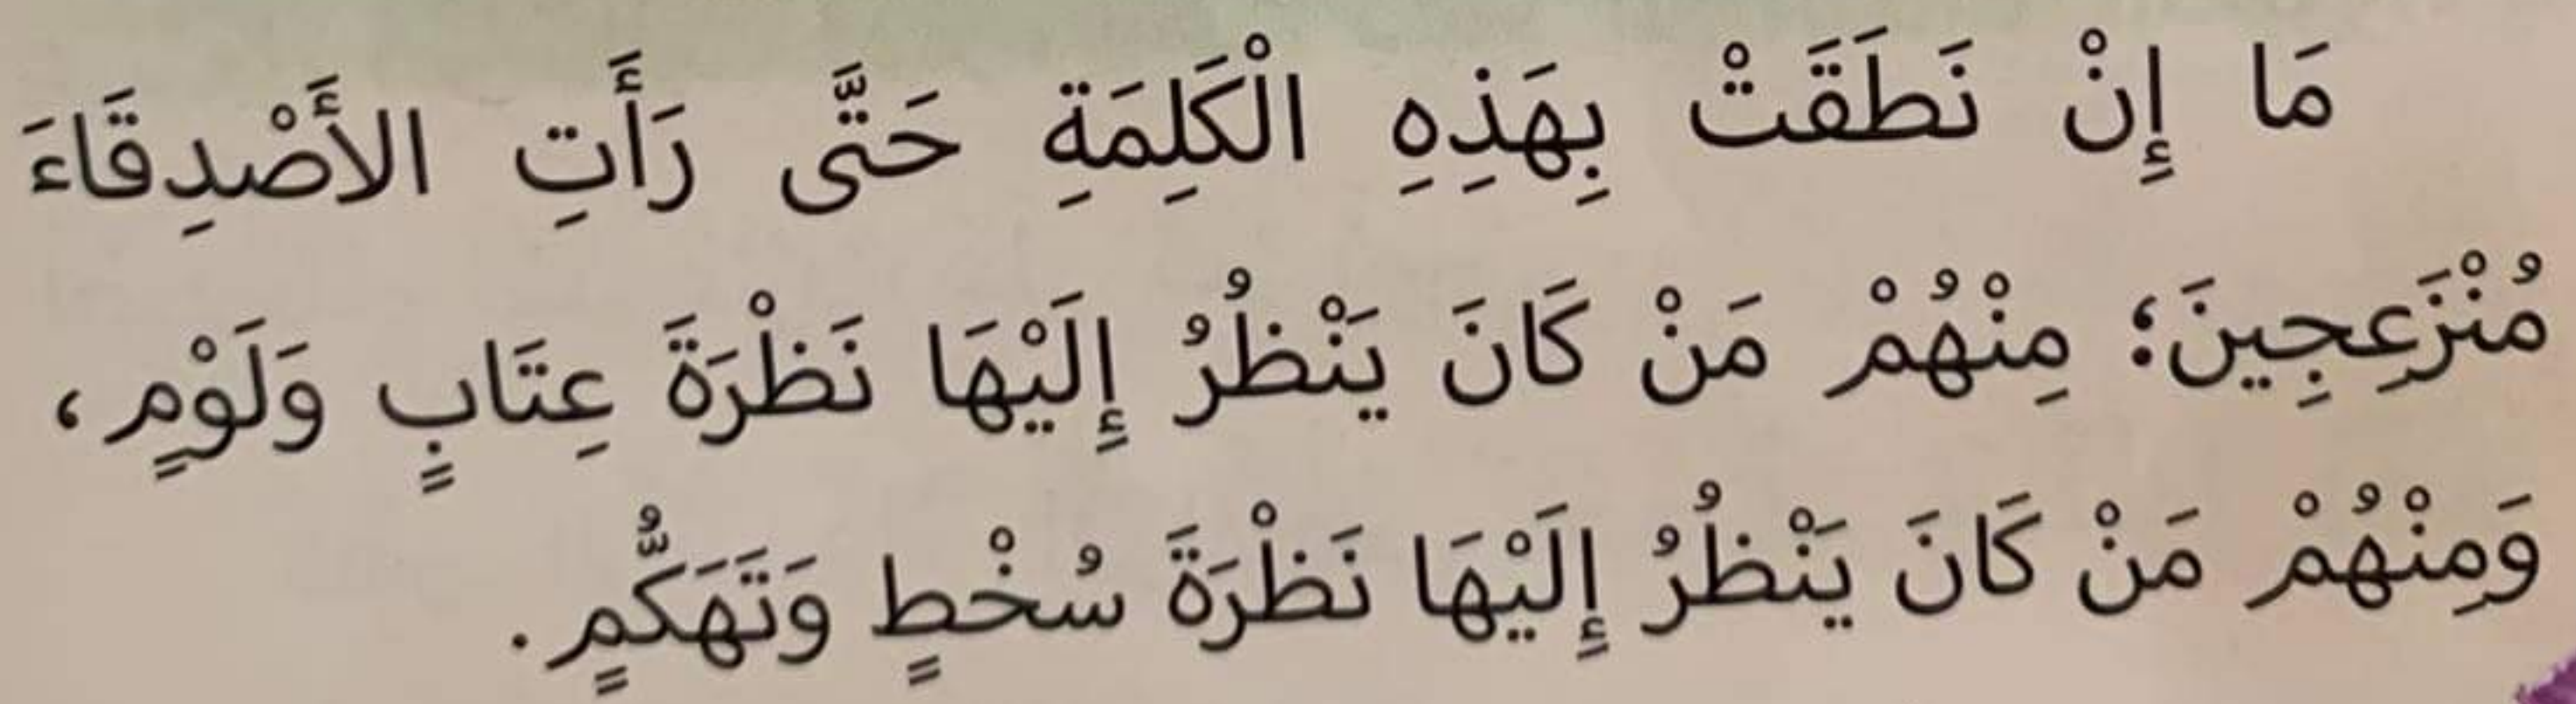 مَا إِنْ نَطَقَتْ بِهَذِهِ الْكَلِمَةِ حَتَّى رَأَتِ الأَصْدِقَاءَ
مُنْزَعِجِينَ؛ مِنْهُمْ مَنْ كَانَ يَنْظُرُ إِلَيْهَا نَظْرَةَ عِتَابٍ وَلَوْمٍ،
وَمِنْهُمْ مَنْ كَانَ يَنْظُرُ إِلَيْهَا نَظْرَةَ سُخْطٍ وَتَهَكُّمٍ.